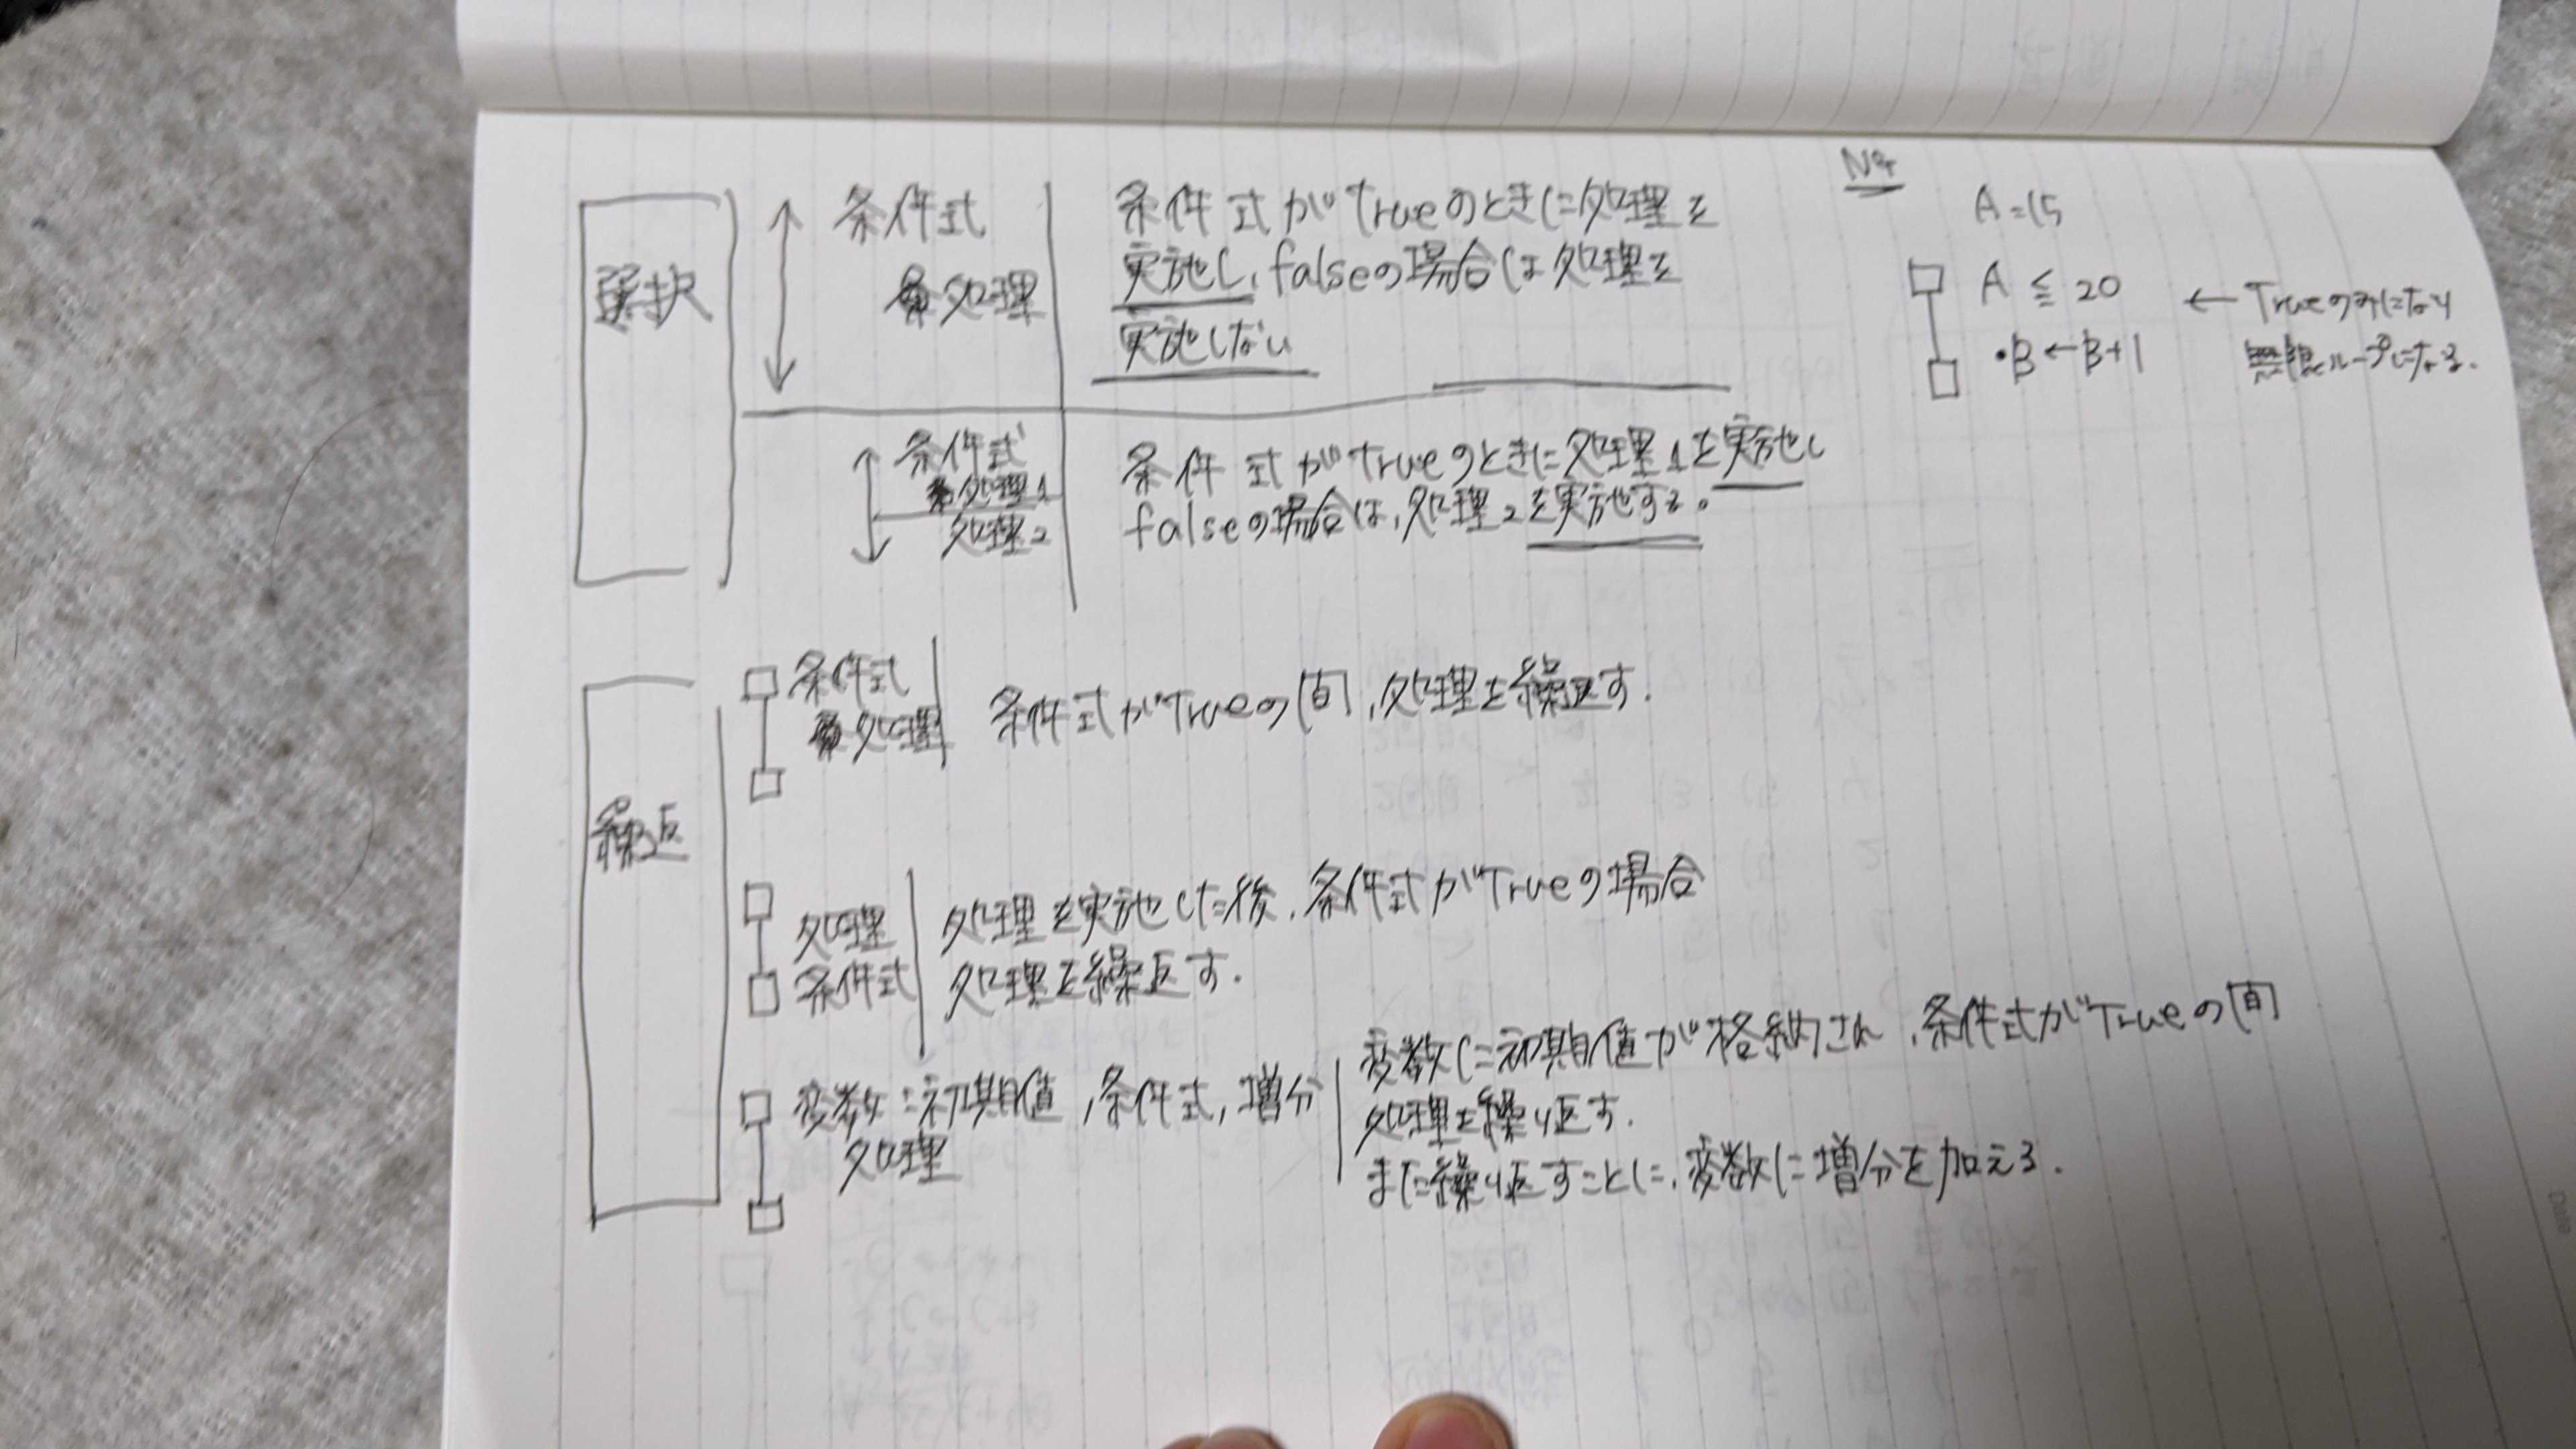 選択
条件式
処理
条件式がTrueのときに処理を
実施し、falseの場合は処理を
実施しない
条件式
処理1
処理2
条件式がTrueのときに処理1を実施し
falseの場合は、処理2を実施する。
A=15
A ≦ 20
・B←B+1
← Trueのみになり
無限ループになる.
繰返
条件式
処理
条件式がTrueの間、処理を繰返す.
処理
条件式
処理を実施した後、条件式がTrueの場合
処理を繰返す.
変数:初期値,条件式,増分
処理
変数に初期値が格納され、条件式がTrueの間
処理を繰り返す.
また繰り返すことに、変数に増分を加える.